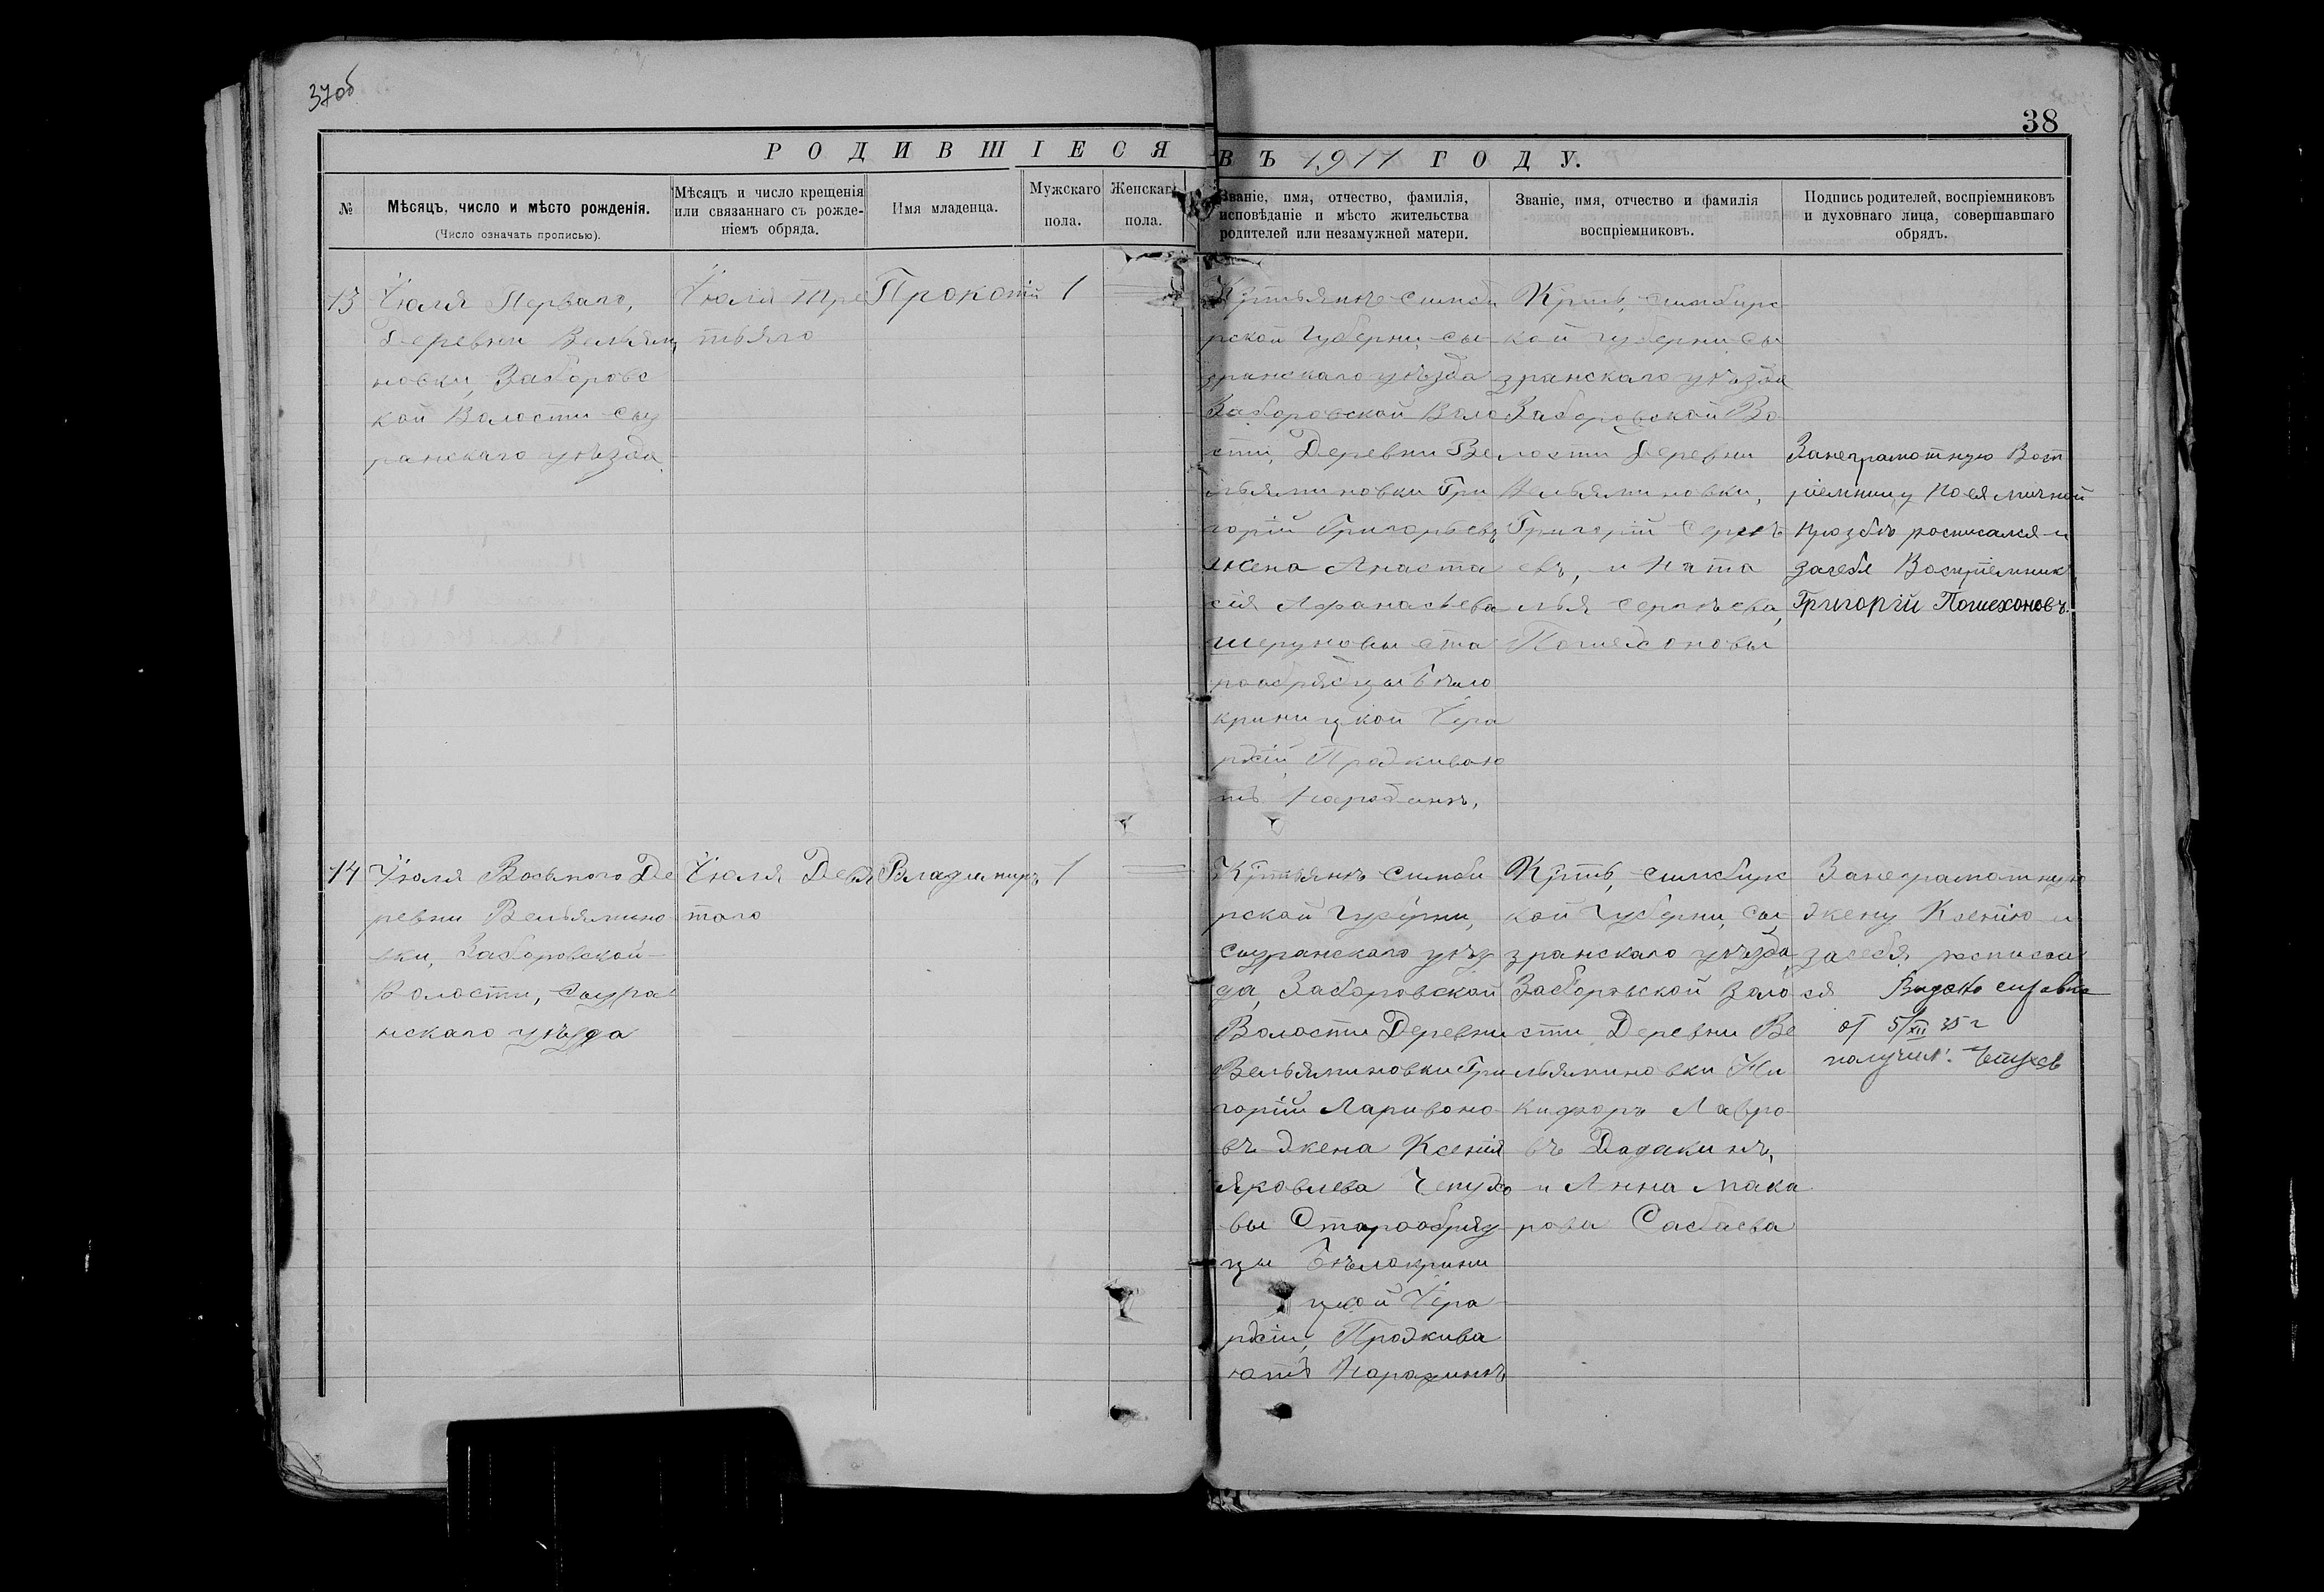 37об
38
РОДИВШІЕСЯ
ВЪ 1911 ГОДУ.
№
Мѣсяцъ, число и мѣсто рожденія.
(Число означать прописью).
Мѣсяцъ и число крещенія
или связаннаго съ рожде-
ніемъ обряда.
Имя младенца.
Мужскаго
пола.
Женскаго
пола.
Званіе, имя, отчество, фамилія,
исповѣданіе и мѣсто жительства
родителей или незамужней матери.
Званіе, имя, отчество и фамилія
воспріемниковъ.
Подпись родителей, воспріемниковъ
и духовнаго лица, совершавшаго
обрядъ.
13
Іюля Перваго,
Деревни Вельями
новки, Заборовс
кой Волости Сыз
ранскаго уѣзда
Іюля Тре
тьяго
Прокопій
1
рской Губерни, сы
зранскаго уѣзда
Заборовской Воло
сти, Деревни Ве
льяминовки Гри
горій Григорьевъ
жена Анаста
сія Афанасьева
ста
рообрядцы Бѣло
криницкой Іера
рхіи, Проживаю
тъ
Крть, симбирс
кой губерни Сы
зранскаго уѣзда
Заборовской Во
лости Деревни
Вельяминовки,
Григорій Сергѣ
евъ, и Ната
лья Сергѣева,
Пошехоновы
Занеграмотную Восп
ріемницу Поея личной
прозбѣ росписался и
засебя Воспріемник
Григорій Пошехоновъ.
14
Іюля Восьмого Де
ревни Вельямино
вки, Заборовской
Волости, Сызра
нскаго уѣзда
Іюля Девя
таго
Владимиръ
1
рской Губерни,
Сызранскаго уѣз
да, Заборовской
Волости Деревни
Вельяминовки Гри
горій Ларивоно
въ жена Ксенія
Яковлева
вы Старообряд
цы Бѣлокрини
цкой Іера
рхіи, Прожива
ютъ
Крть, симбирс
кой Губерни, Сы
зранскаго уѣзда,
Заборовской Воло
сти Деревни Ве
льяминовки Ни
кифоръ Лавро
въ Дадакинъ,
и Анна Мака
рова
Занеграмотную
жену Ксению и
засебя росписал
ся
Видано справка
от 5/XII 35 г
получил.